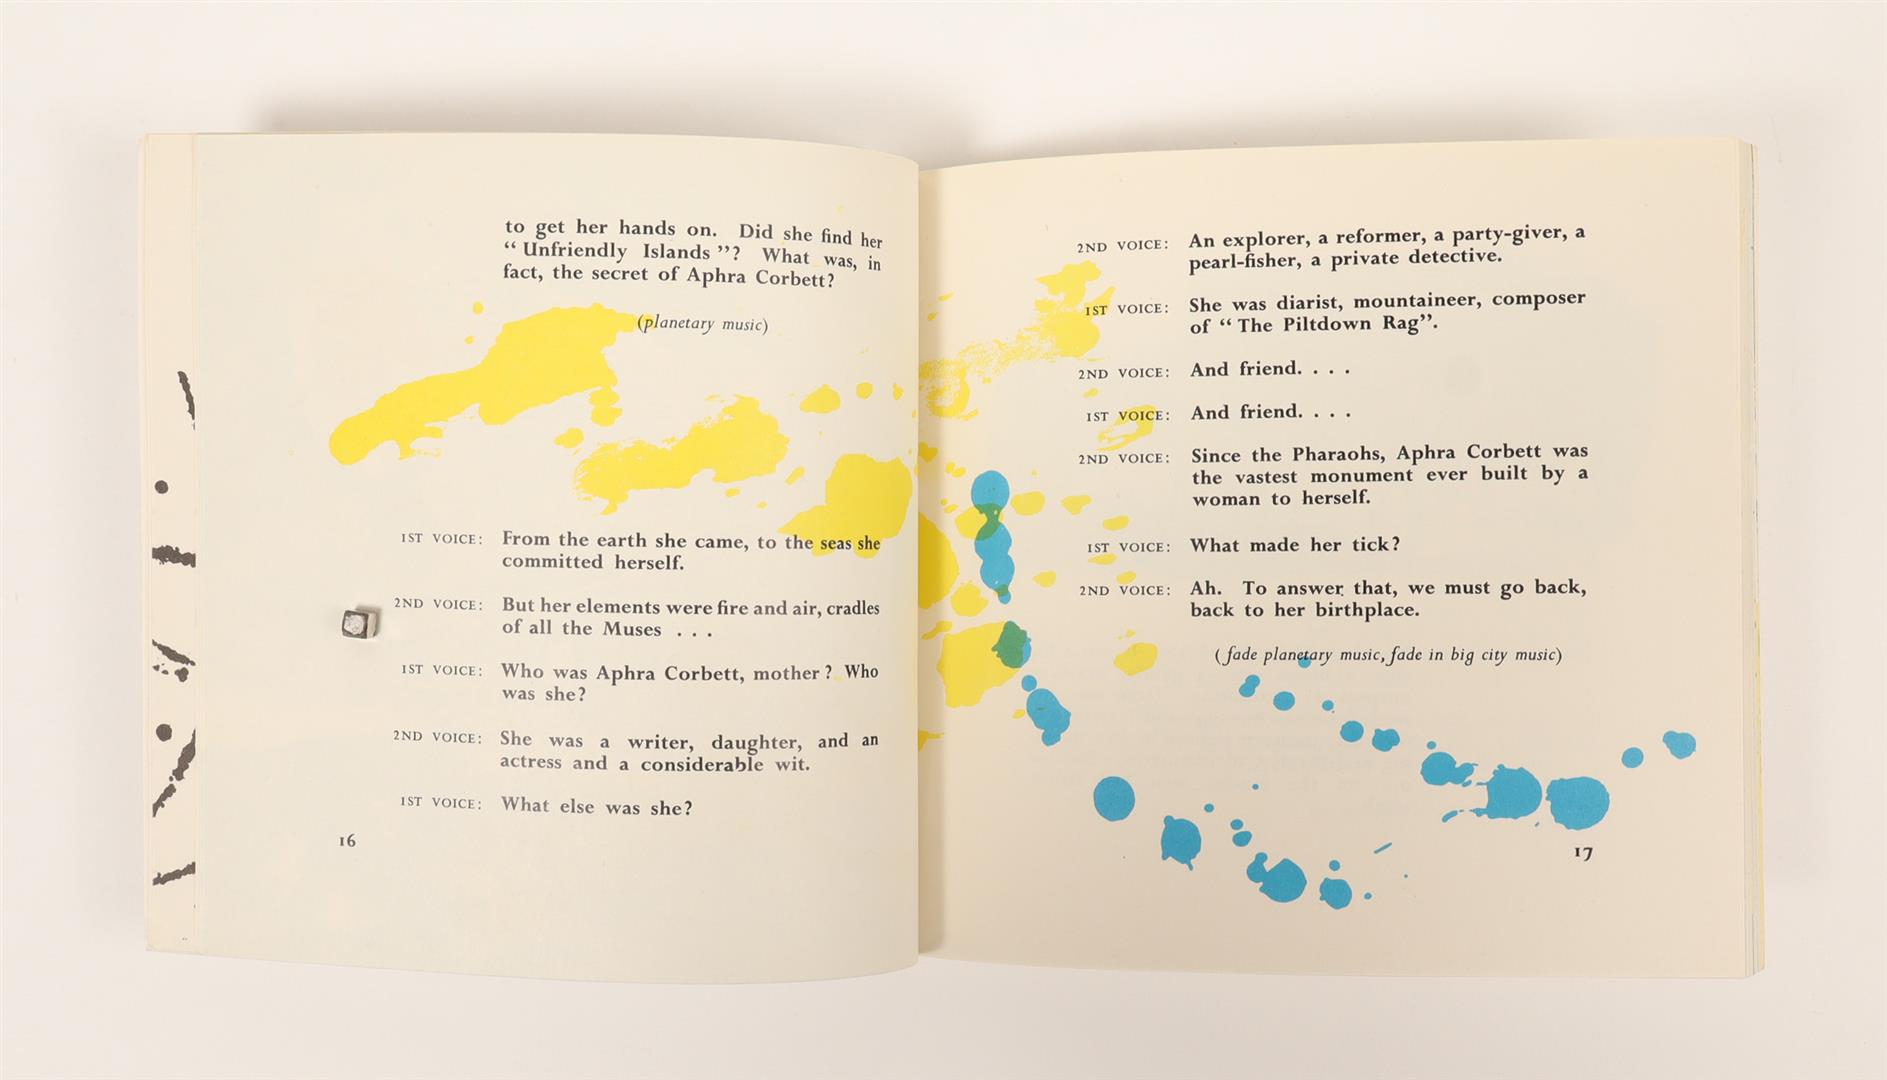 to get her hands on. Did she find her
“ Unfriendly Islands ”? What was, in
fact, the secret of Aphra Corbett?
(planetary music)
1ST VOICE: From the earth she came, to the seas she
committed herself.
2ND VOICE: But her elements were fire and air, cradles
of all the Muses . . .
1ST VOICE: Who was Aphra Corbett, mother? Who
was she?
2ND VOICE: She was a writer, daughter, and an
actress and a considerable wit.
1ST VOICE: What else was she?
16
2ND VOICE: An explorer, a reformer, a party-giver, a
pearl-fisher, a private detective.
1ST VOICE: She was diarist, mountaineer, composer
of “ The Piltdown Rag”.
2ND VOICE: And friend. . . .
1ST VOICE: And friend. . . .
2ND VOICE: Since the Pharaohs, Aphra Corbett was
the vastest monument ever built by a
woman to herself.
1ST VOICE: What made her tick?
2ND VOICE: Ah. To answer that, we must go back,
back to her birthplace.
(fade planetary music, fade in big city music)
17